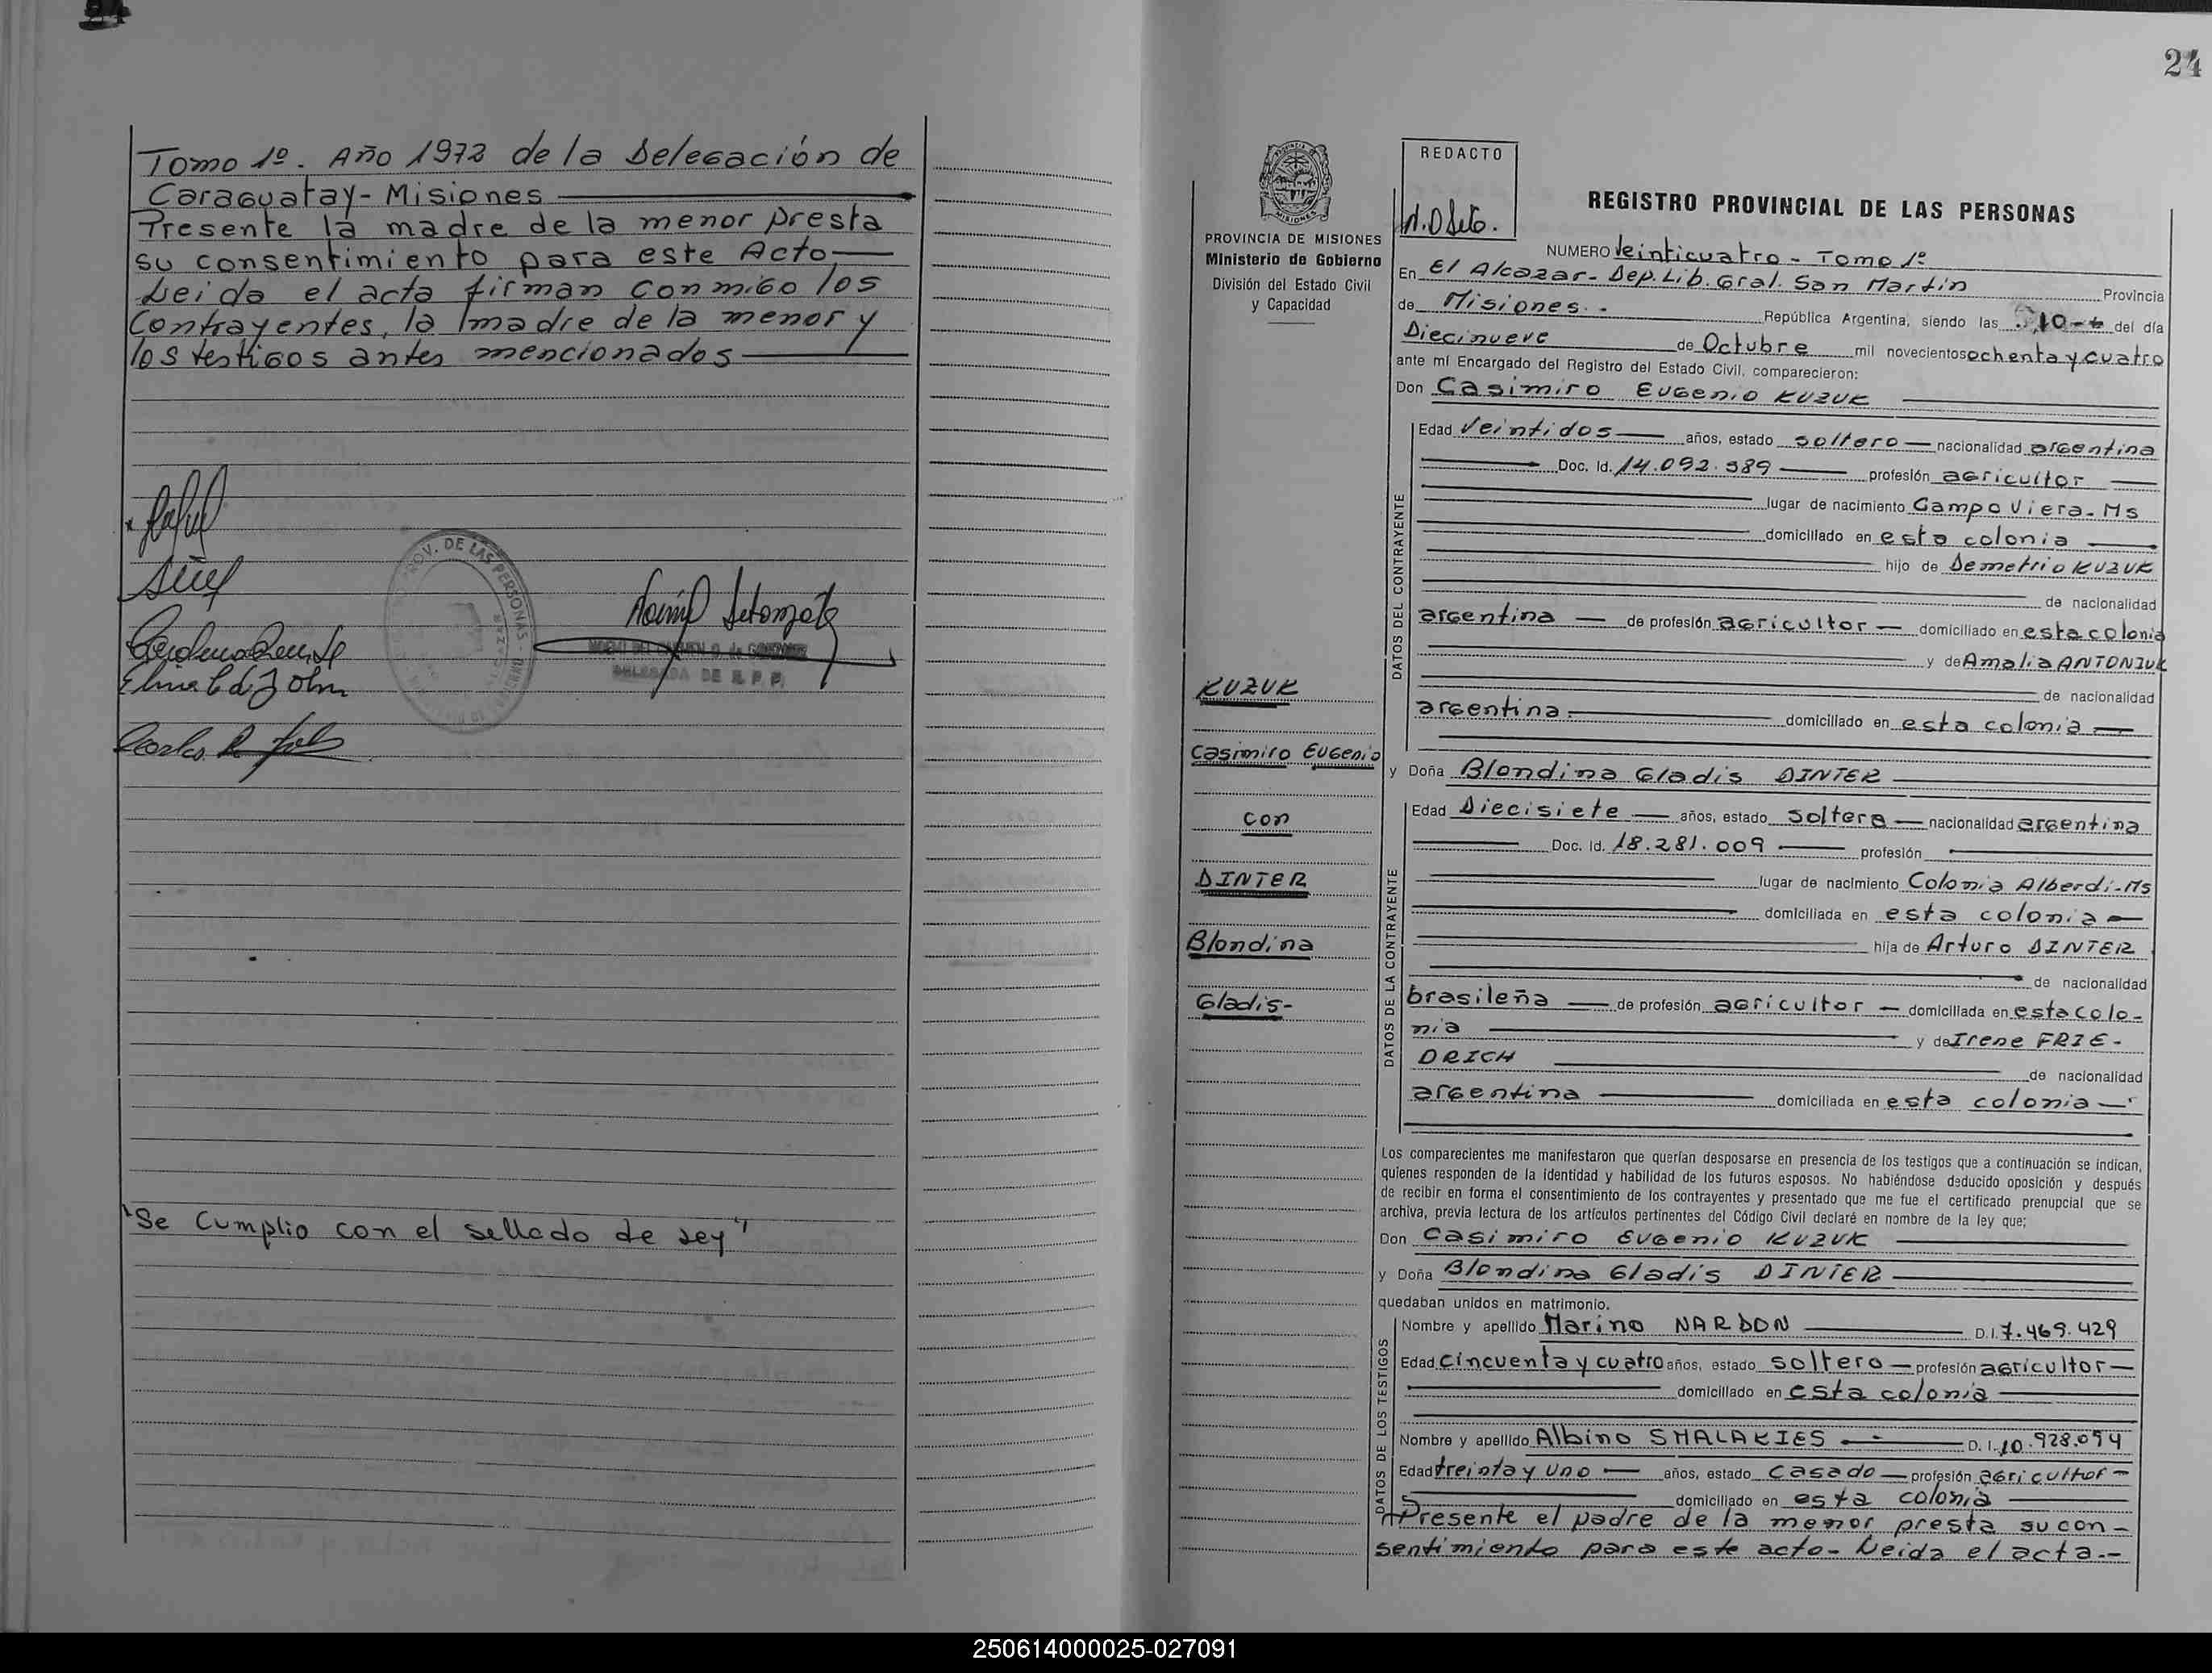 Tomo 1º. Año 1972 de la Delegación de
Caraguatay-Misiones
Presente la madre de la menor presta
su consentimiento para este Acto
Leida el acta firman conmigo los
Contrayentes, la madre de la menor y
los testigos antes mencionados
PROV. DE LAS PERSONAS
DELEGADA DE R. P. P.
"Se Cumplio con el sellado de Ley"
24
REDACTO
PROVINCIA DE MISIONES
Ministerio de Gobierno
División del Estado Civil
y Capacidad
REGISTRO PROVINCIAL DE LAS PERSONAS
NUMERO Veinticuatro - Tomo 1º
En El Alcazar- Dep. Lib. Gral. San Martin Provincia
de Misiones.- República Argentina, siendo las 10 del día
Diecinueve de Octubre mil novecientos ochenta y cuatro
ante mí Encargado del Registro del Estado Civil, comparecieron:
Don Casimiro Eugenio KUZUK
DATOS DEL CONTRAYENTE
Edad Veintidos años, estado soltero nacionalidad argentina
Doc. Id. 14.092.589 profesión agricultor
lugar de nacimiento Campo Viera-Ms
domiciliado en esta colonia
hijo de Demetrio KUZUK
de nacionalidad
argentina de profesión agricultor domiciliado en esta colonia
y de Amalia ANTONIUK
de nacionalidad
argentina domiciliado en esta colonia
KUZUK
Casimiro Eugenio
con
DINTER
Blondina
Gladis-
y Doña Blondina Gladis DINTER
DATOS DE LA CONTRAYENTE
Edad Diecisiete años, estado soltera nacionalidad argentina
Doc. Id. 18.281.009 profesión
lugar de nacimiento Colonia Alberdi-Ms
domiciliada en esta colonia
hija de Arturo DINTER
de nacionalidad
brasileña de profesión agricultor domiciliada en esta colo-
nia y de Irene FRIE-
DRICH
de nacionalidad
argentina domiciliada en esta colonia
Los comparecientes me manifestaron que querían desposarse en presencia de los testigos que a continuación se indican,
quienes responden de la identidad y habilidad de los futuros esposos. No habiéndose deducido oposición y después
de recibir en forma el consentimiento de los contrayentes y presentado que me fue el certificado prenupcial que se
archiva, previa lectura de los artículos pertinentes del Código Civil declaré en nombre de la ley que;
Don Casimiro Eugenio KUZUK
y Doña Blondina Gladis DINTER
quedaban unidos en matrimonio.
DATOS DE LOS TESTIGOS
Nombre y apellido Marino NARDON D.I. 7.469.429
Edad cincuenta y cuatro años, estado soltero profesión agricultor
domiciliado en esta colonia
Nombre y apellido Albino SMALAKIES D.I. 10.928.094
Edad treinta y uno años, estado casado profesión agricultor
domiciliado en esta colonia
Presente el padre de la menor presta su con-
sentimiento para este acto- Leida el acta.-
250614000025-027091